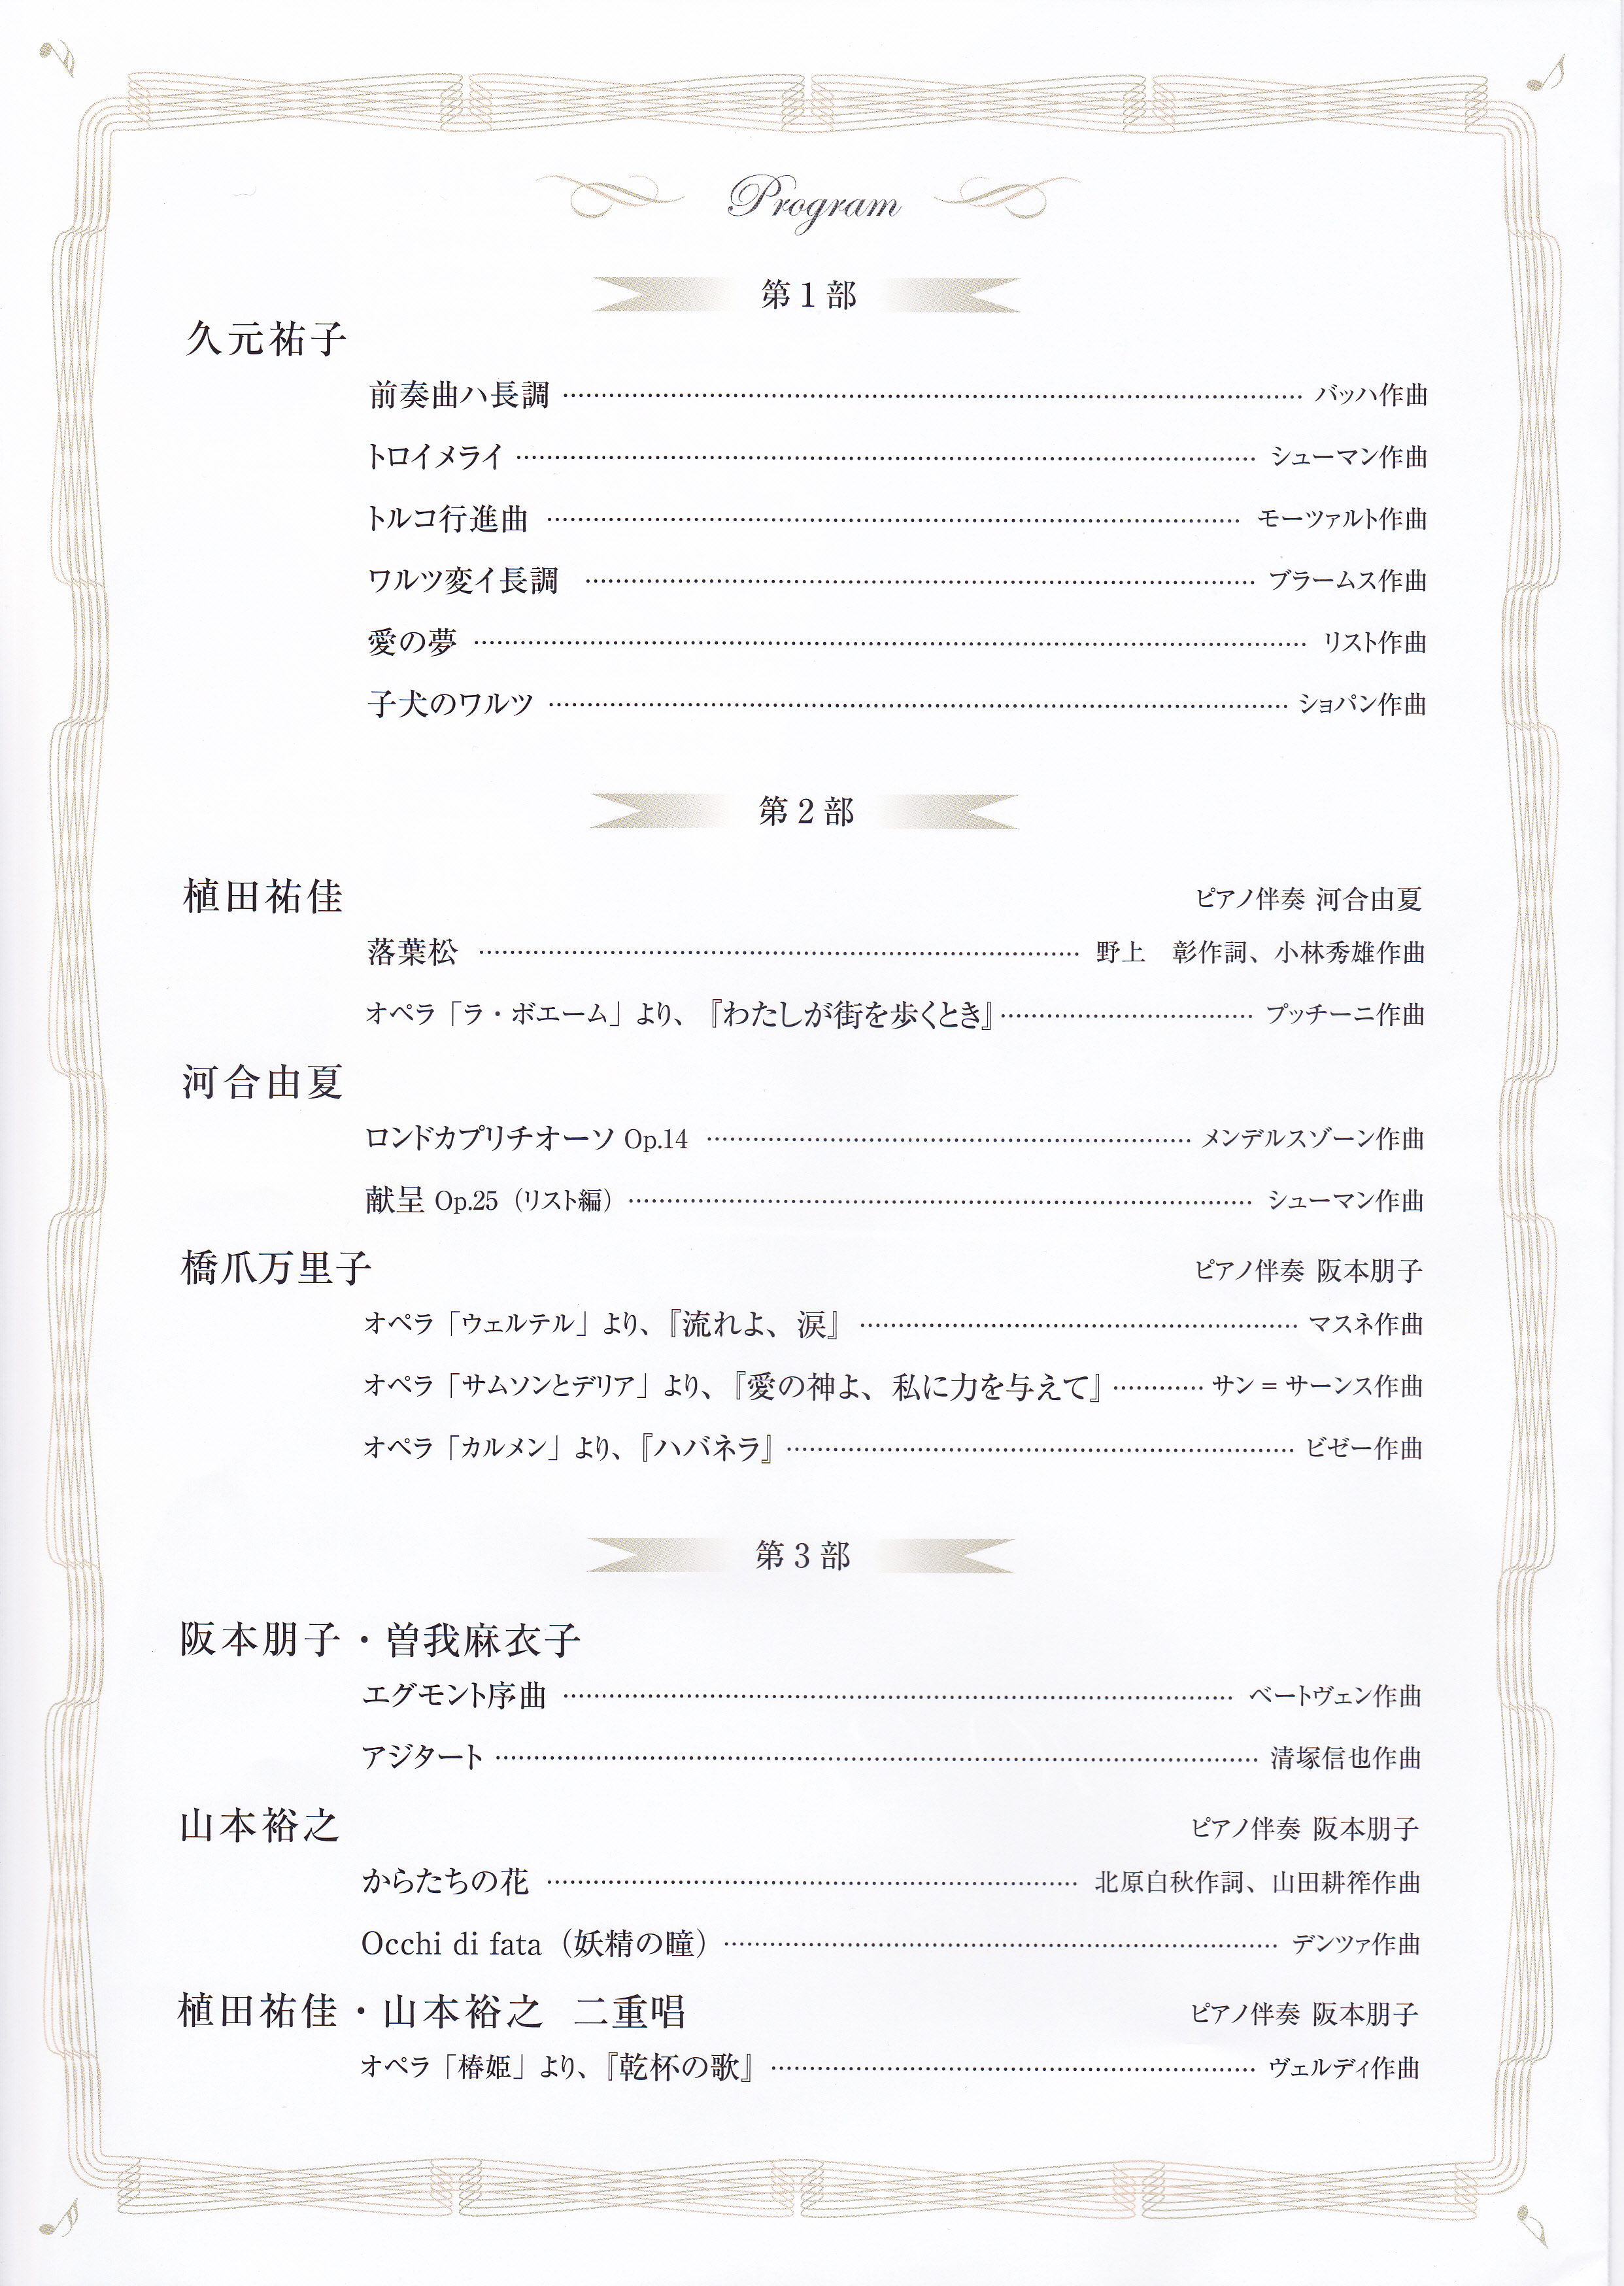 Program
第1部
久元祐子
前奏曲ハ長調 …… バッハ作曲
トロイメライ …… シューマン作曲
トルコ行進曲 …… モーツァルト作曲
ワルツ変イ長調 …… ブラームス作曲
愛の夢 …… リスト作曲
子犬のワルツ …… ショパン作曲
第2部
植田祐佳 ピアノ伴奏 河合由夏
落葉松 …… 野上　彰作詞、小林秀雄作曲
オペラ「ラ・ボエーム」より、『わたしが街を歩くとき』 …… プッチーニ作曲
河合由夏
ロンドカプリチオーソ Op.14 …… メンデルスゾーン作曲
献呈 Op.25（リスト編） …… シューマン作曲
橋爪万里子 ピアノ伴奏 阪本朋子
オペラ「ウェルテル」より、『流れよ、涙』 …… マスネ作曲
オペラ「サムソンとデリア」より、『愛の神よ、私に力を与えて』 …… サン＝サーンス作曲
オペラ「カルメン」より、『ハバネラ』 …… ビゼー作曲
第3部
阪本朋子・曽我麻衣子
エグモント序曲 …… ベートヴェン作曲
アジタート …… 清塚信也作曲
山本裕之 ピアノ伴奏 阪本朋子
からたちの花 …… 北原白秋作詞、山田耕筰作曲
Occhi di fata（妖精の瞳） …… デンツァ作曲
植田祐佳・山本裕之 二重唱 ピアノ伴奏 阪本朋子
オペラ「椿姫」より、『乾杯の歌』 …… ヴェルディ作曲